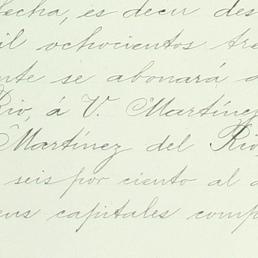 fecha, es decir des
il ochocientos tre
nte se abonará a
Rio, á V. Martínez
Martínez del Rio,
seis por ciento al a
ens capitales comp